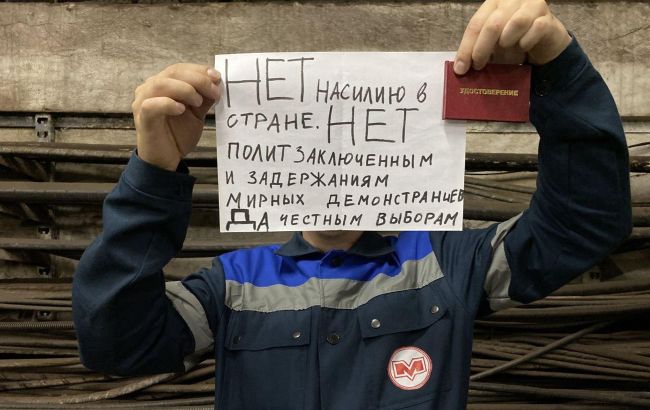 НЕТ НАСИЛИЮ В
СТРАНЕ. НЕТ
ПОЛИТЗАКЛЮЧЕННЫМ
И ЗАДЕРЖАНИЯМ
МИРНЫХ ДЕМОНСТРАНЦЕВ
ДА ЧЕСТНЫМ ВЫБОРАМ
УДОСТОВЕРЕНИЕ
М